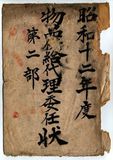 昭和十二年度
物品給代理委任状
第二部